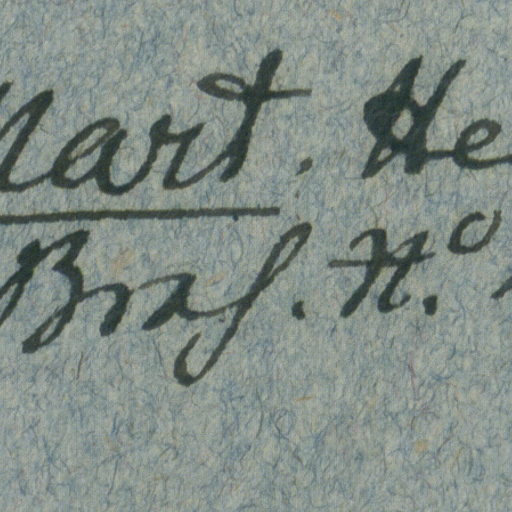 Mart. He
Bras. N.º